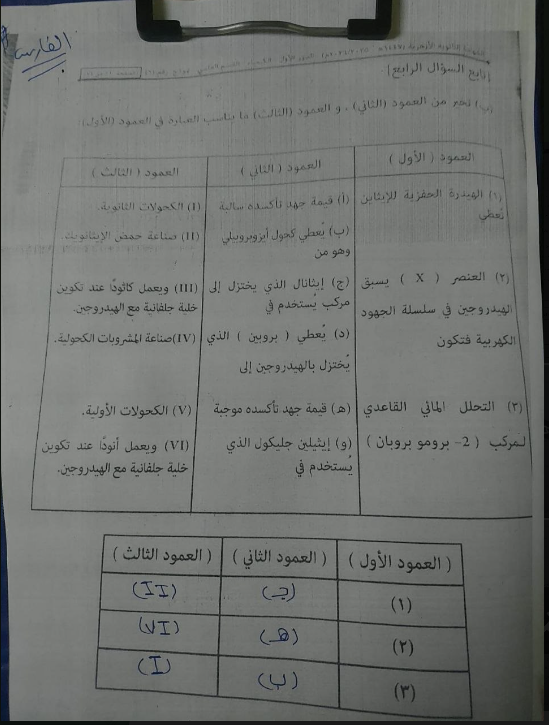 الفارس
[تابع السؤال الرابع]:
(ب) تخير من العمود (الثاني) ، و العمود (الثالث) ما يناسب العبارة في العمود (الأول):
العمود ( الأول )
العمود ( الثاني )
العمود ( الثالث )
(١) الهيدرة الحفزية للإيثاين
تُعطي
(أ) قيمة جهد تأكسده سالبة
(I) الكحولات الثانوية.
(ب) يُعطي كحول أيزوبروبيلي
وهو من
(II) صناعة حمض الإيثانويك.
(٢) العنصر ( X ) يسبق
الهيدروجين في سلسلة الجهود
الكهربية فتكون
(ج) إيثانال الذي يختزل إلى
مركب يُستخدم في
(III) ويعمل كاثودًا عند تكوين
خلية جلفانية مع الهيدروجين.
(د) يُعطي ( بروبين ) الذي
يُختزل بالهيدروجين إلى
(IV) صناعة المشروبات الكحولية.
(٣) التحلل المائي القاعدي
لمركب ( 2- برومو بروبان )
(هـ) قيمة جهد تأكسده موجبة
(V) الكحولات الأولية.
(و) إيثيلين جليكول الذي
يُستخدم في
(VI) ويعمل أنودًا عند تكوين
خلية جلفانية مع الهيدروجين.
( العمود الأول ) ( العمود الثاني ) ( العمود الثالث )
(١) (جـ) (II)
(٢) (هـ) (VI)
(٣) (ب) (I)